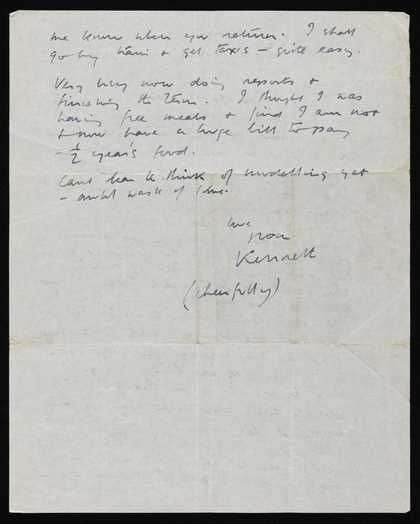 me know when you return. I shall
go by train & get taxis – quite easy.
Very busy now doing reports &
finishing the term. I thought I was
having free meals & find I am not
& now have a huge bill to pay
– ½ year's food.
Cant bear to think of modelling yet
– awful waste of time.
love
from
Kenneth
(cheerfully)